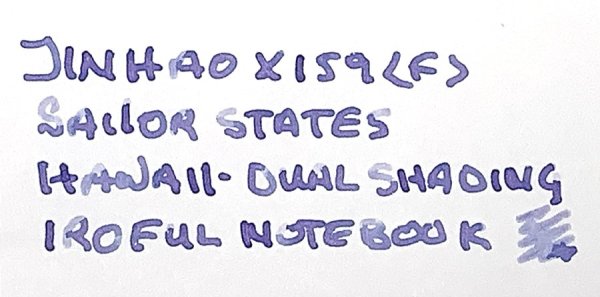 JINHAO X159 <F>
SAILOR STATES
HAWAII - DUAL SHADING
IROFUL NOTEBOOK